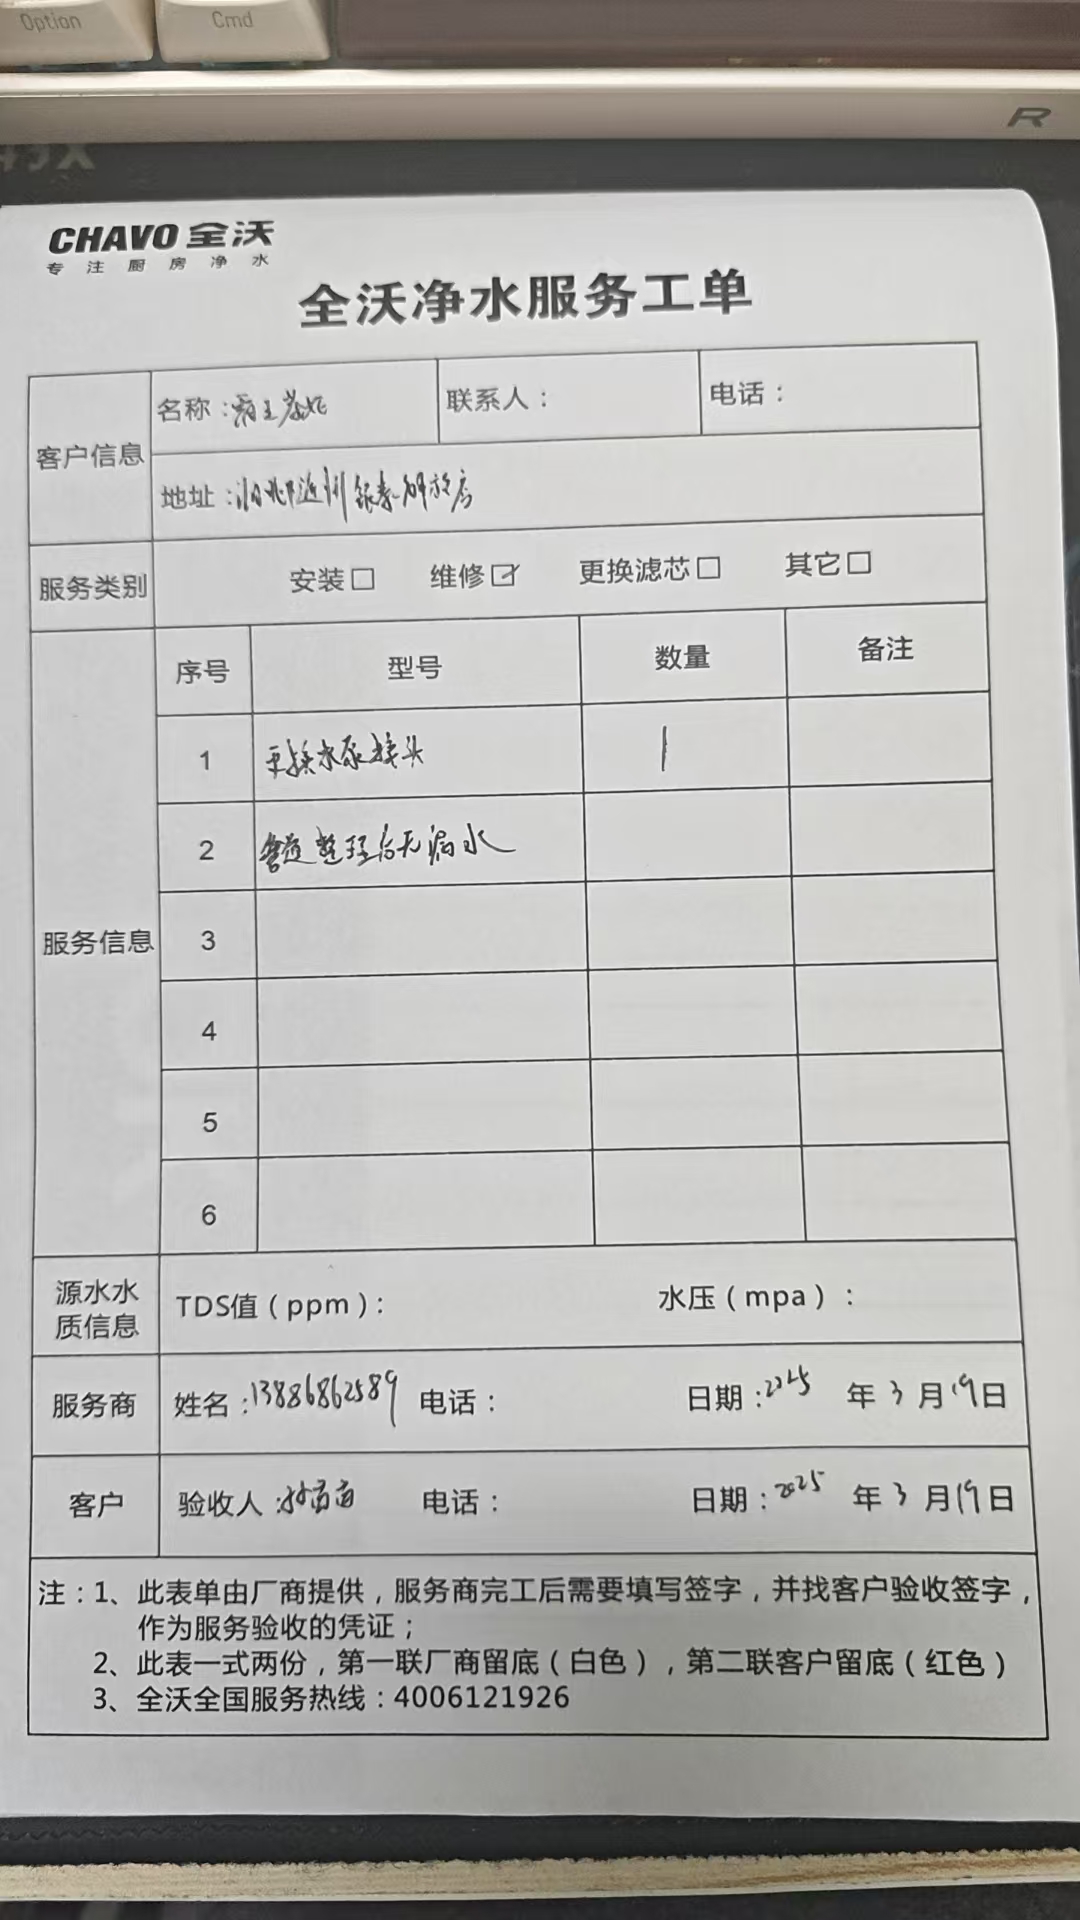 Option
Cmd
R
CHAVO 全沃
专注厨房净水
全沃净水服务工单
客户信息
名称：霸王茶姬
联系人：
电话：
地址：湖北随州银泰 店
服务类别
安装□ 维修☑ 更换滤芯□ 其它□
服务信息
序号 型号 数量 备注
1 更换水泵接头 1
2 管道整理后无漏水
3
4
5
6
源水水质信息
TDS值（ppm）：
水压（mpa）：
服务商
姓名：13886862589 电话： 日期：2025 年 3 月 19 日
客户
验收人： 电话： 日期：2025 年 3 月 19 日
注：1、此表单由厂商提供，服务商完工后需要填写签字，并找客户验收签字，
作为服务验收的凭证；
2、此表一式两份，第一联厂商留底（白色），第二联客户留底（红色）
3、全沃全国服务热线：4006121926